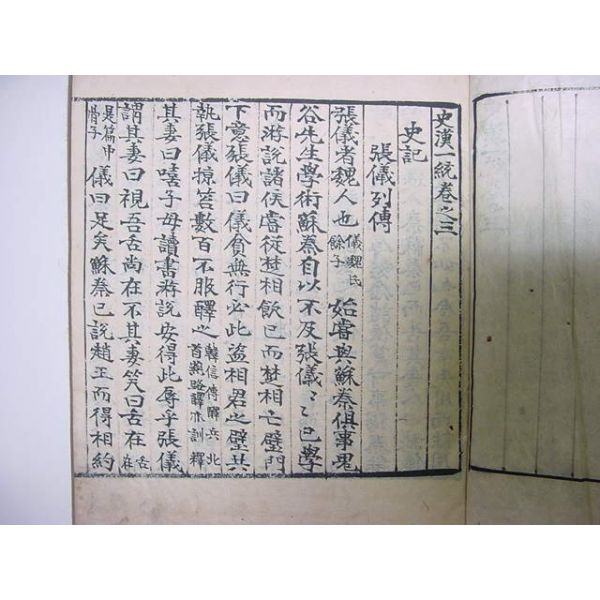 史漢一統卷之三
史記
張儀列傳
張儀者魏人也儀魏氏餘子始嘗與蘇秦俱事鬼
谷先生學術蘇秦自以不及張儀〻已學
而游說諸侯嘗從楚相飲已而楚相亡璧門
下意張儀曰儀貧無行必此盗相君之璧共
執張儀掠笞數百不服醳之韓信傳醳兵北首燕路醳亦訓釋
其妻曰嘻子毋讀書游說安得此辱乎張儀
謂其妻曰視吾舌尚在不其妻笑曰舌在舌在
是篇中骨子儀曰足矣蘇秦已說趙王而得相約